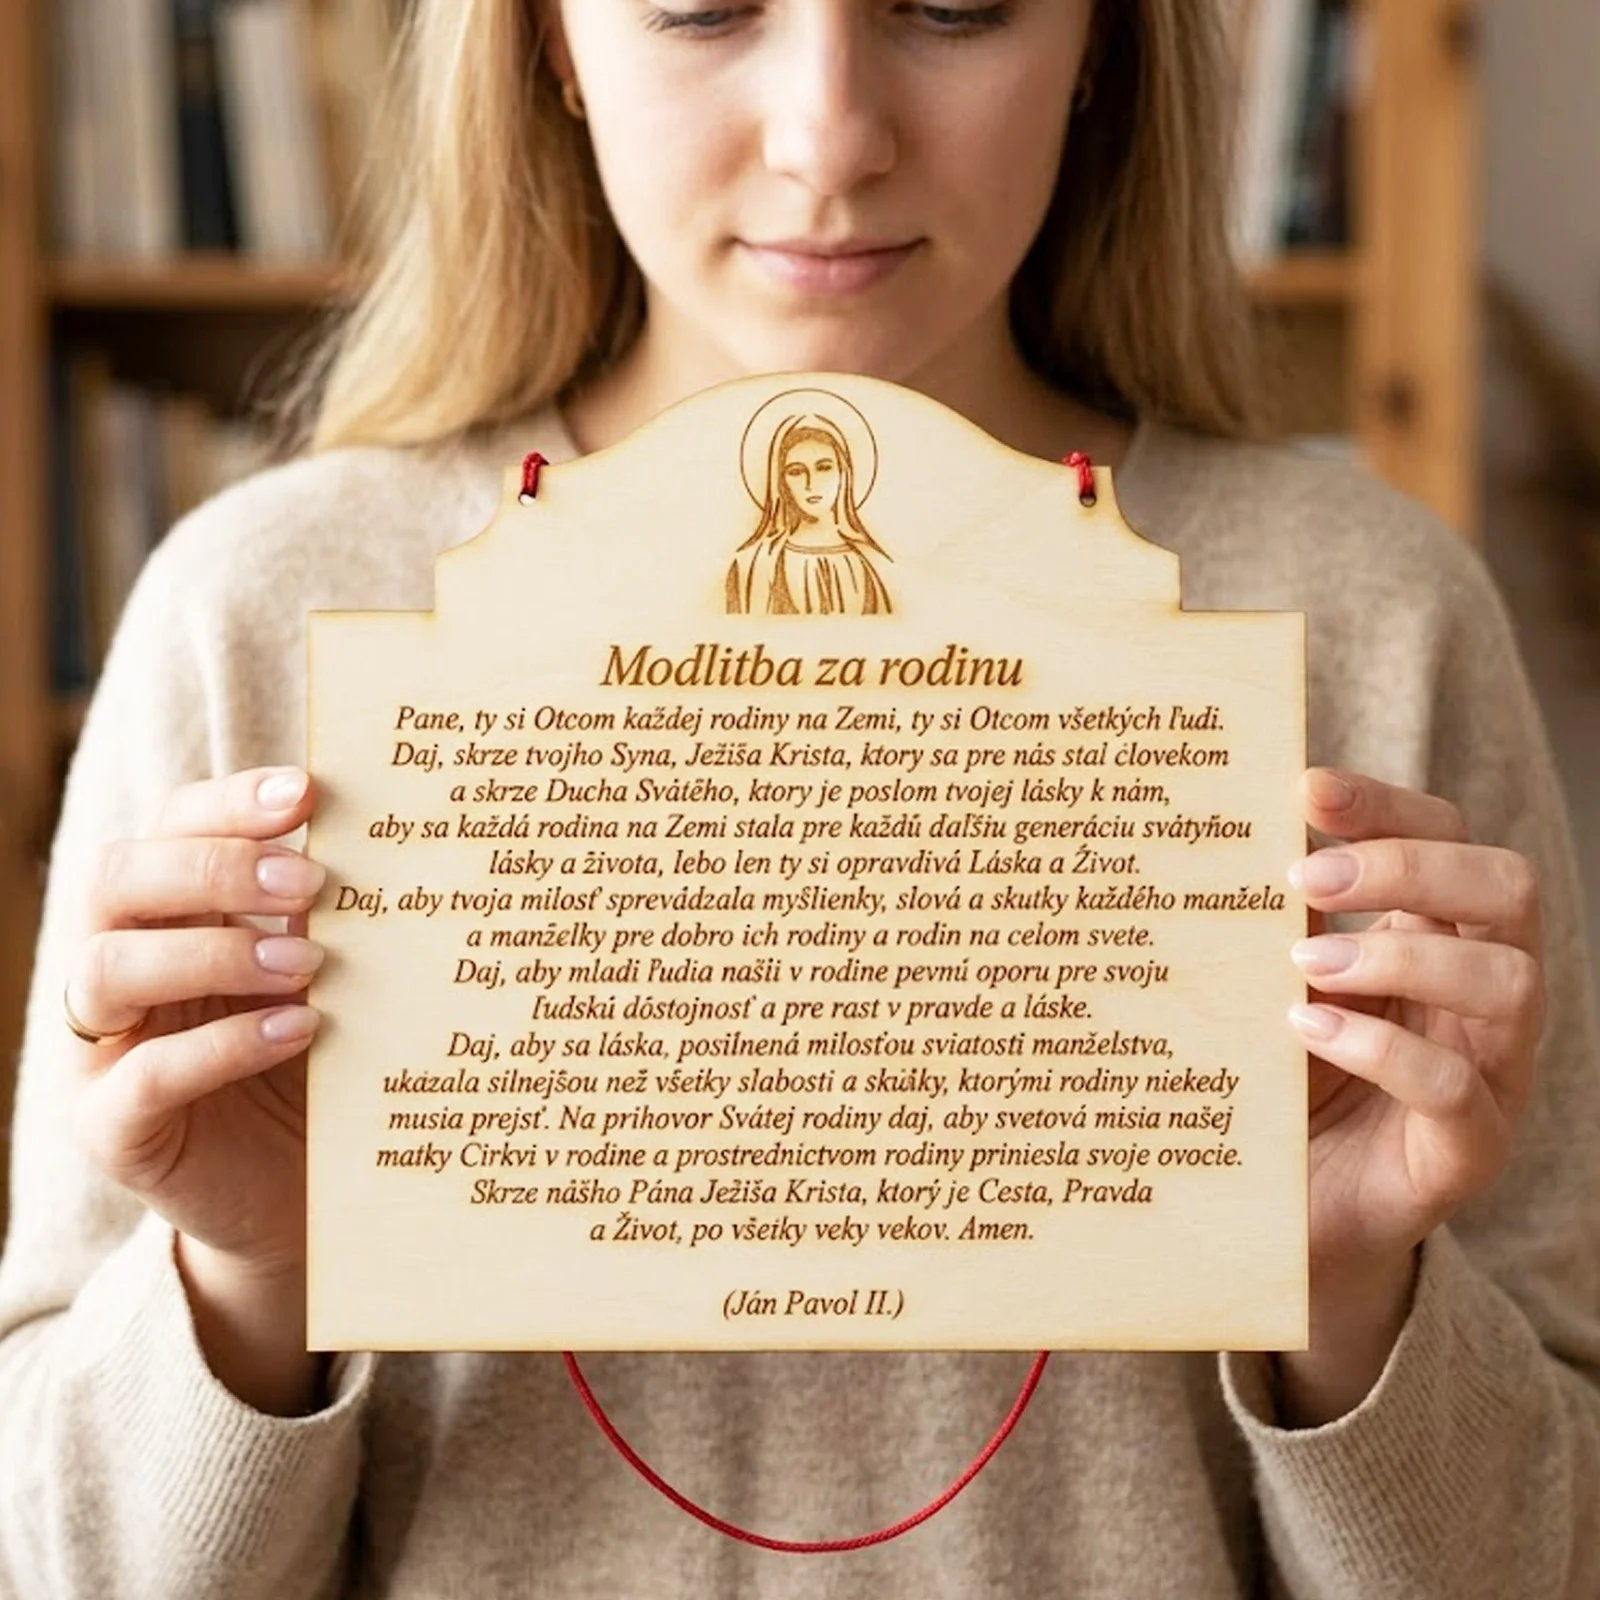 Modlitba za rodinu
Pane, ty si Otcom každej rodiny na Zemi, ty si Otcom všetkých ľudi.
Daj, skrze tvojho Syna, Ježiša Krista, ktory sa pre nás stal človekom
a skrze Ducha Svátého, ktory je poslom tvojej lásky k nám,
aby sa každá rodina na Zemi stala pre každú ďaľšiu generáciu svátyňou
lásky a života, lebo len ty si opravdivá Láska a Život.
Daj, aby tvoja milosť sprevádzala myšlienky, slová a skutky každého manžela
a manželky pre dobro ich rodiny a rodin na celom svete.
Daj, aby mladi ľudia našii v rodine pevnú oporu pre svoju
ľudskú dóstojnosť a pre rast v pravde a láske.
Daj, aby sa láska, posilnená milosťou sviatosti manželstva,
ukázala silnejšou než všetky slabosti a, ktorými rodiny niekedy
musia prejsť. Na prihovor Svátej rodiny daj, aby svetová misia našej
matky Cirkvi v rodine a prostrednictvom rodiny priniesla svoje ovocie.
Skrze nášho Pána Ježiša Krista, ktorý je Cesta, Pravda
a Život, po všetky veky vekov. Amen.
(Ján Pavol II.)